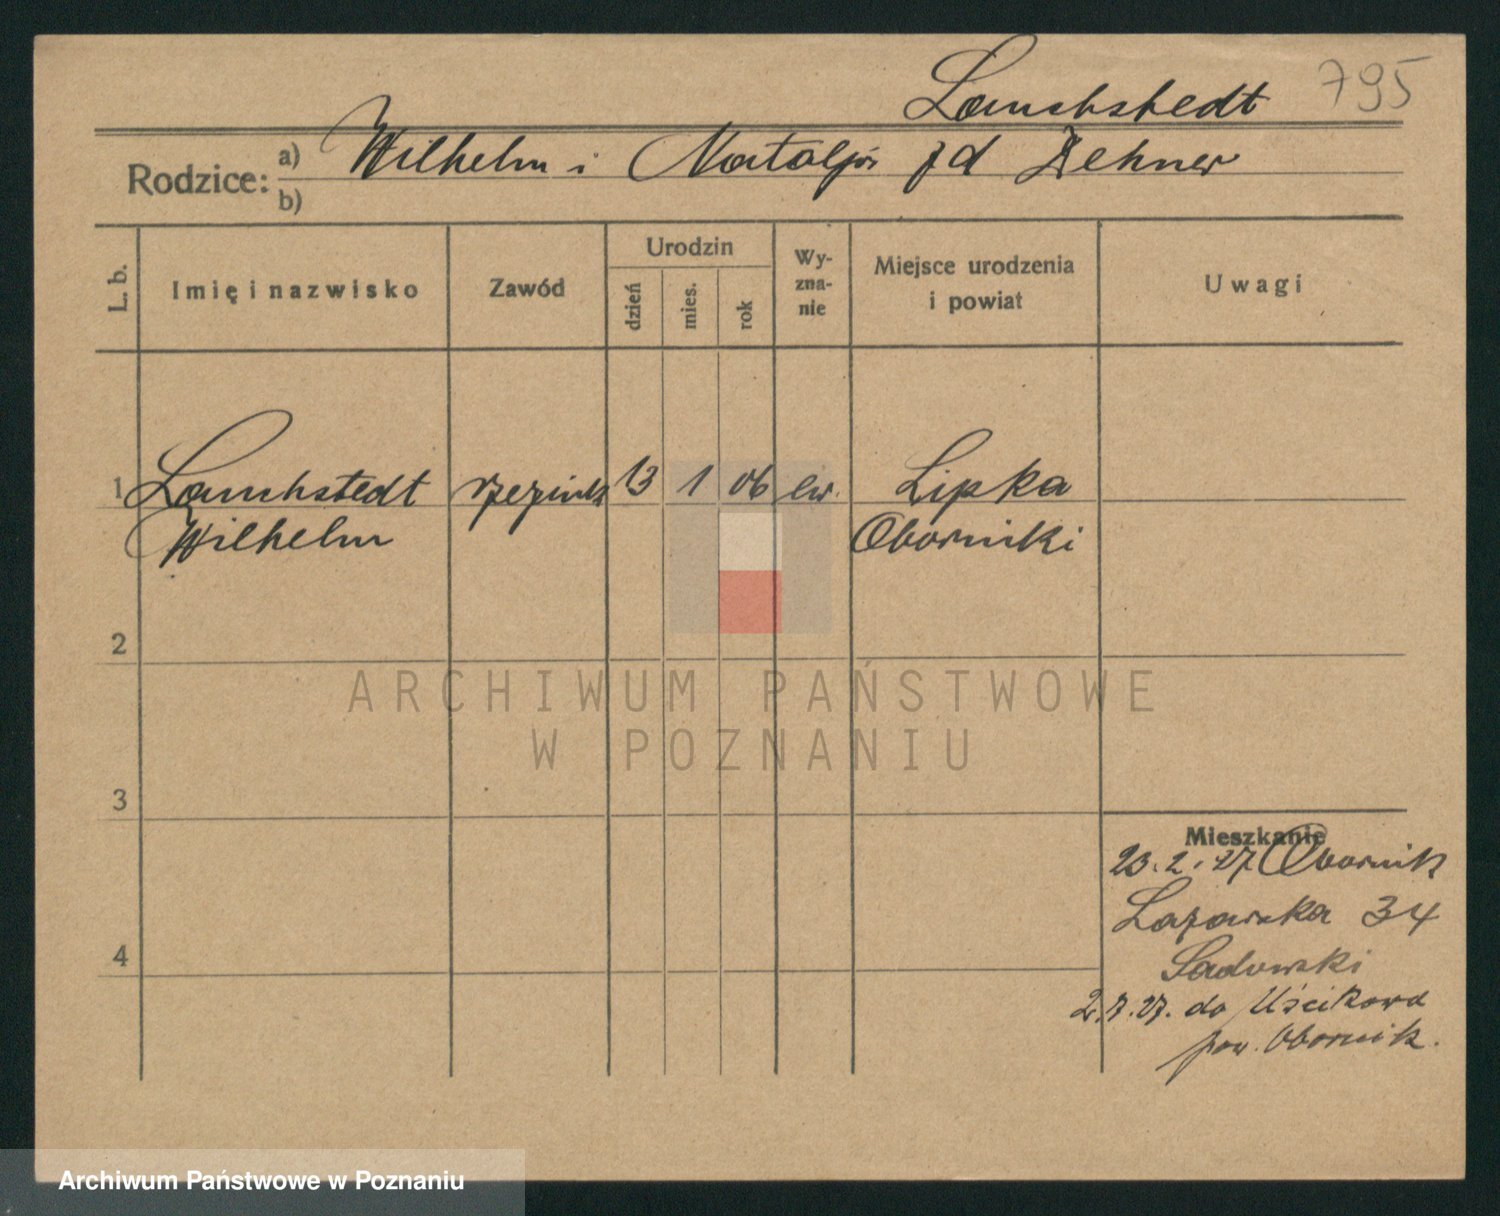 795
Lauchstedt
Rodzice: a) Wilhelm i Natalja zd Zehner
b)
L. b.
Imię i nazwisko
Zawód
Urodzin
dzień
mies.
rok
Wy-
zna-
nie
Miejsce urodzenia
i powiat
Uwagi
1 Lauchstedt rzeźnik 13 1 06 ew. Lipka
Wilhelm Oborniki
2
3
4
Mieszkanie
23.2.27 Obornik
Łazarska 34
Sadowski
2.7.27. do Uścikowa
pow. Obornik.
ARCHIWUM PAŃSTWOWE
W POZNANIU
Archiwum Państwowe w Poznaniu